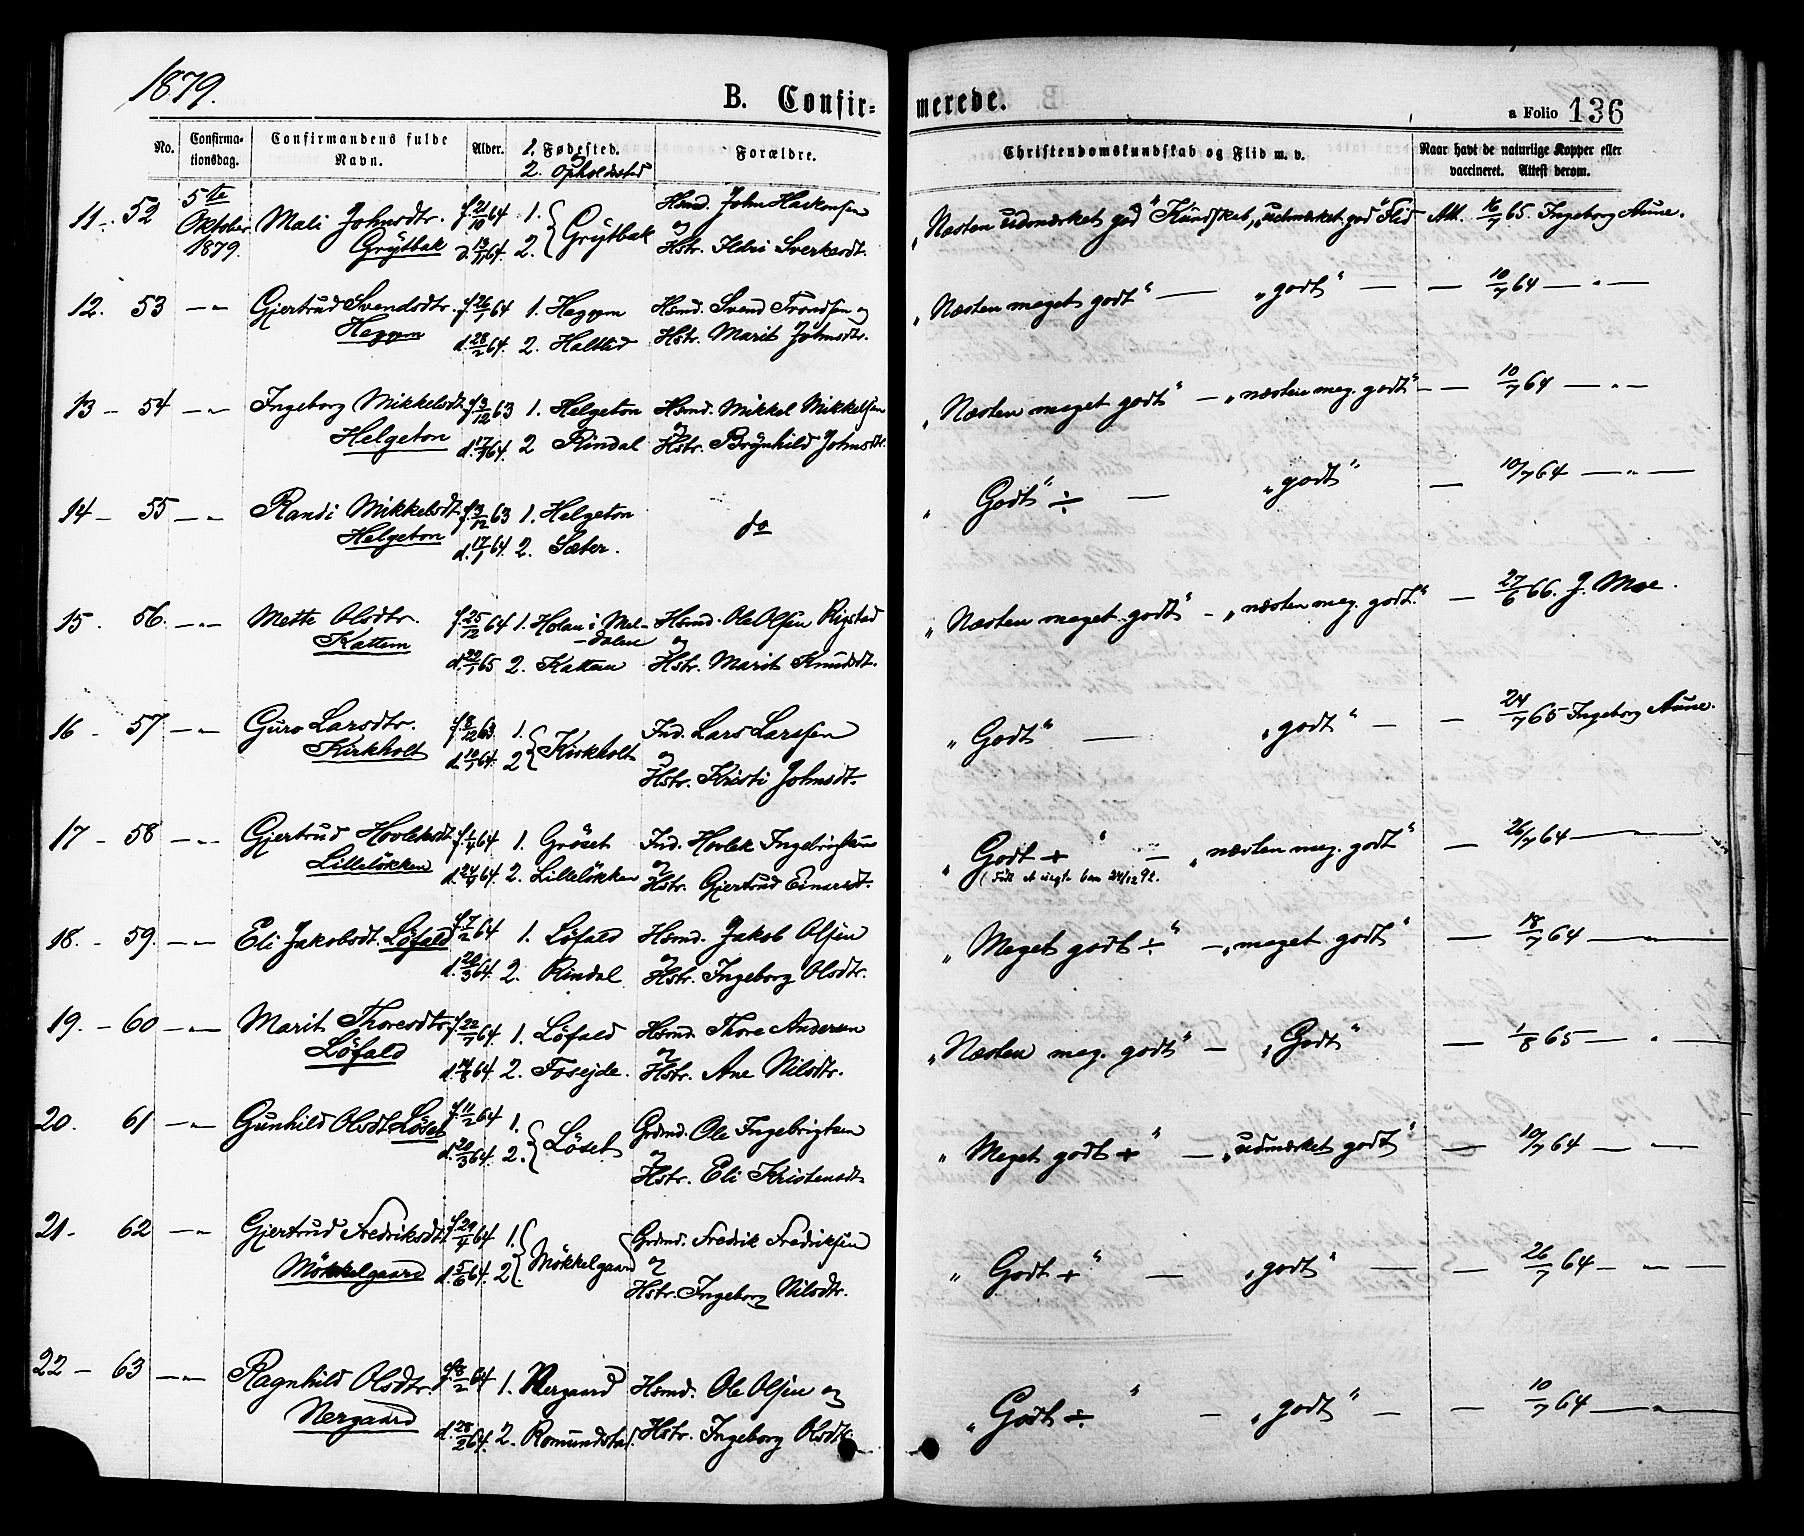 1879.
B. Confir- merede.
a Folio 136
No. Confirma- Confirmandens fulde Alder. 1. Fødested. Forældre. Christendomskundskab og Flid m. v. Naar havt de naturlige Kopper eller
tionsdag. Navn. 2. Opholdssted vaccineret. Attest derom.
5te Hsmd. John Haakonsen
11 - 52 Oktober Mali Johnsdtr. f. 21/10 64 1. Grytbak og „Næsten udmærket god“ Kundskab, „udmærket god“ Flid Att. 16/7 65. Ingeborg Aune.
1879. Grytbak d. 13/11 64. 2. Hstr. Ildri Sverkesdt.
12. 53 — „ — Gjertrud Svendsdtr. f. 26/1 64 1. Heggem Hsmd. Svend Trondsen og „Næsten meget godt“ — „godt“ — — 10/7 64 — „ —
Heggem d. 28/2 64. 2. Haltlid Hstr. Marit Johnsdtr.
13 - 54 — „ — Ingeborg Mikkelsdt. f. 3/12 63 1. Helgeton Hsmd. Mikkel Mikkelsen „Næsten meget godt“ — „næsten meg. godt“ — — 10/7 64 — „ —
Helgeton d. 17/1 64. 2 Rindal og Hstr. Brynhild Johnsdtr.
14 - 55 — „ — Randi Mikkelsdt. f. 3/12 63 1. Helgeton do „Godt“ ÷ — „godt“ — 10/7 64 — „ —
Helgeton d. 17/1 64. 2. Sæter.
15. 56. — „ — Mette Olsdtr. f. 25/12 64 1. Holan i Mel- Hsmd. Ole Olsen Rigstad „Næsten meget godt“ — „næsten meg. godt.“ — 27/6 66. J. Moe.
-dalen og
Kattem d. 22/1 65 2. Kattem Hstr. Marit Knudsdt.
16 - 57 — „ — Guro Larsdtr. f. 8/12 63 1. Kirkholt Ind. Lars Larssen „Godt“ — „godt“ — — 24/7 65 Ingeborg Aune.
Kirkholt d. 10/1 64. 2 og
Hstr. Kristi Johnsdt.
17 - 58 — „ — Gjertrud Hovleksdt. f. 1/4 64 1. Gröset Ind. Hovlek Ingebrigtsen „Godt + “ — „næsten meg. godt“ — 26/7 64 — „ —
Lilleløkken d. 24/4 64. 2. Lilleløkken og Hstr. Gjertrud Einarsdt.
18. - 59. — „ — Eli Jakobsdt. Löfald f. 7/2 64 1. Löfald Hsmd. Jakob Olsen „Meget godt ÷“ — „meget godt“ — 18/7 64 — „ —
d. 20/3 64. 2. Rindal og Hstr. Ingeborg Olsdtr.
19. - 60 — „ — Marit Thoresdtr. f. 22/7 64. 1. Löfald Hsmd. Thore Andersen „Næsten meg. godt“ — „Godt“ — 1/8 65 — „ —
Löfald d. 14/8 64. 2. Fosejde. og Hstr. Ane Nilsdtr.
20. 61 — „ — Gunhild Olsdt. Löset f. 11/2 64 1. Löset Grdmd. Ole Ingebrigtsen „Meget godt + “ — „udmærket godt“ — 10/7 64 — „ —
d. 20/3 64. 2. og
Hstr. Eli Kristensdt.
21 - 62 — „ — Gjertrud Fredriksdt. f. 29/4 64 1. Mökkelgaard Grdmd. Fredrik Fredriksen „Godt + “ — „godt“ — — 26/7 64 — „ —
Mökkelgaard d. 5/6 64. 2. og
Hstr. Ingeborg Nilsdtr.
22 - 63 — „ — Ragnhild Olsdtr. f. 8/2 64 1. Nergaard Hsmd. Ole Olsen og „Godt ÷ “ — „godt“ — — 10/7 64 — „ —
Nergaard d. 28/2 64. 2. Romundstad. Hstr. Ingeborg Olsdtr.